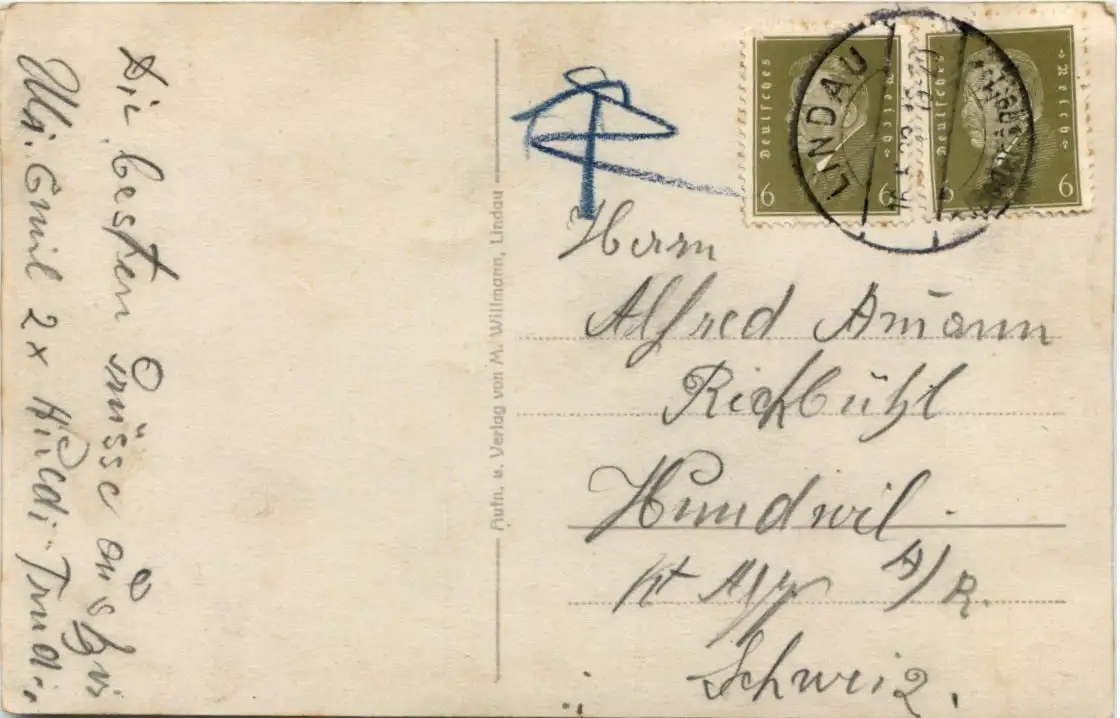 Die besten Grüsse aus
Uli. Emil 2 x Hildi. Trudi.
Aufn. u. Verlag von M. Wittmann, Lindau
Deutsches Reich
6 6
Deutsches Reich
6 6
LINDAU
Herrn
Alfred Amann
Richbühl
Hundwil.
Kt App A/R.
Schweiz.